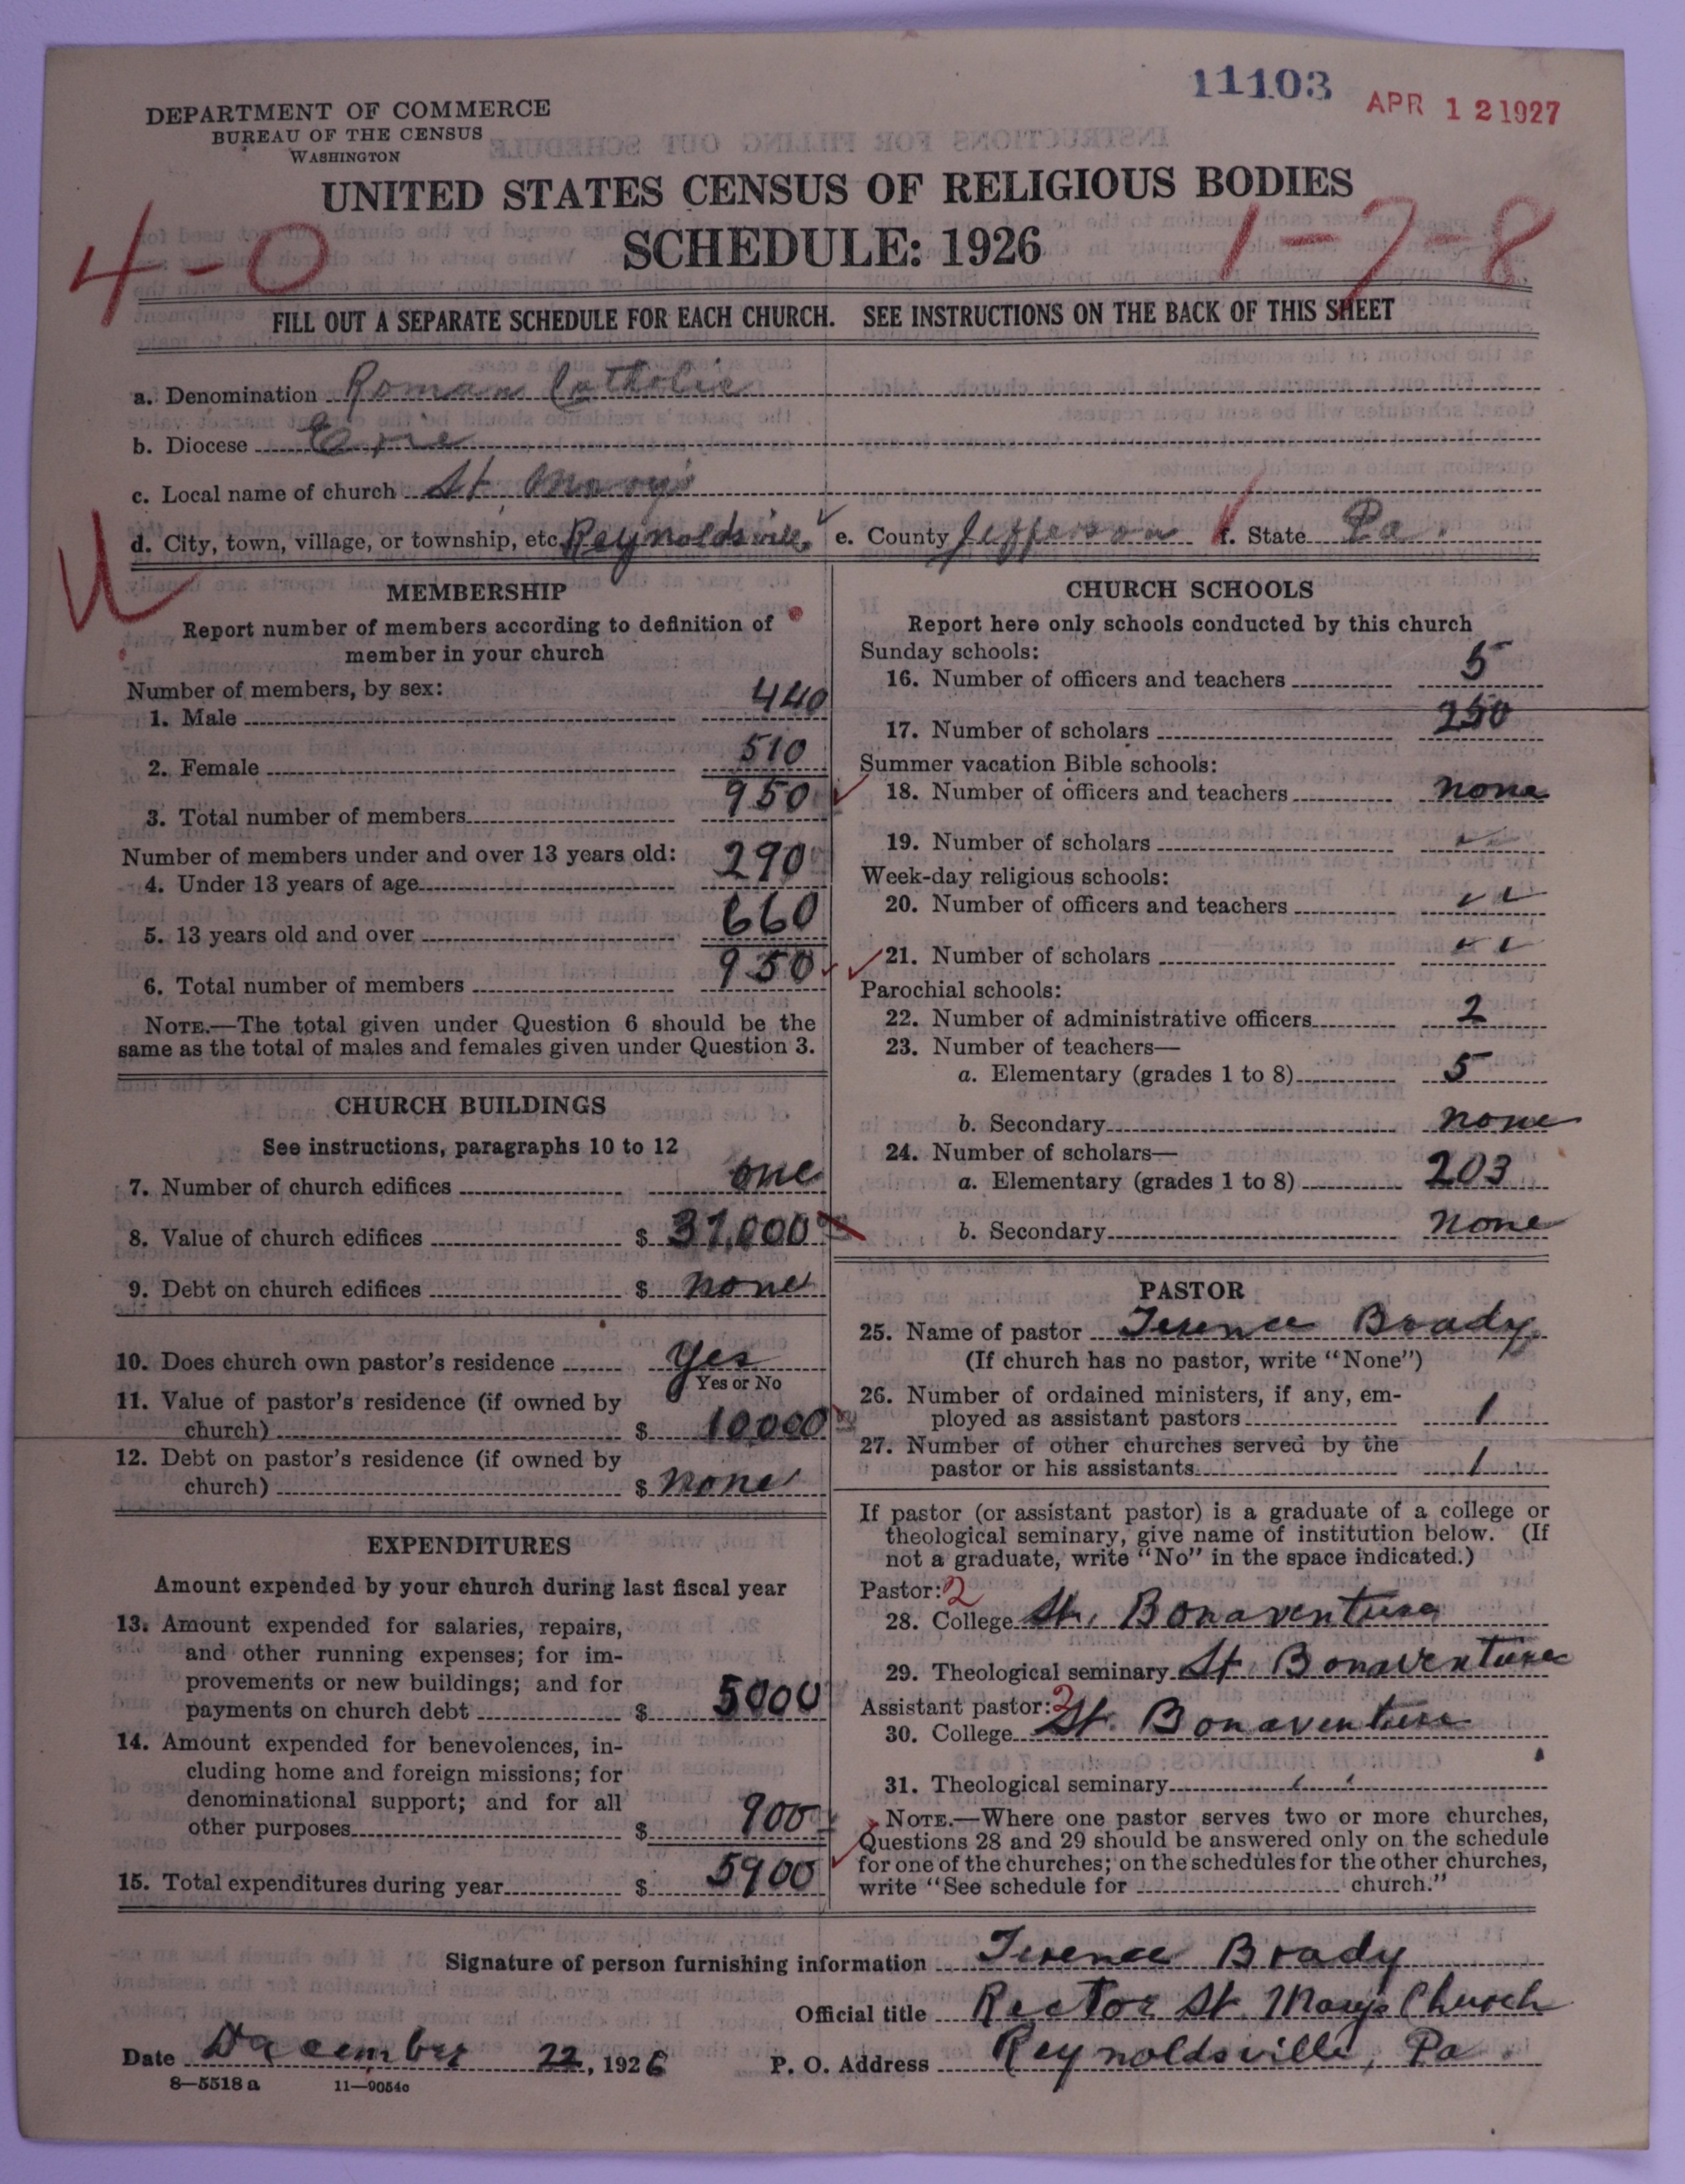 11103
APR 12 1927
DEPARTMENT OF COMMERCE
BUREAU OF THE CENSUS
WASHINGTON
UNITED STATES CENSUS OF RELIGIOUS BODIES
4-0
SCHEDULE: 1926
1-7-8
FILL OUT A SEPARATE SCHEDULE FOR EACH CHURCH. SEE INSTRUCTIONS ON THE BACK OF THIS SHEET
a. Denomination Roman Catholic
b. Diocese Erie
c. Local name of church St. Mary's
d. City, town, village, or township, etc. Reynoldsville e. County Jefferson f. State Pa.
MEMBERSHIP
Report number of members according to definition of
member in your church
Number of members, by sex:
1. Male 440
2. Female 510
3. Total number of members 950
Number of members under and over 13 years old:
4. Under 13 years of age 290
5. 13 years old and over 660
6. Total number of members 950
NOTE.—The total given under Question 6 should be the
same as the total of males and females given under Question 3.
CHURCH BUILDINGS
See instructions, paragraphs 10 to 12
7. Number of church edifices one
8. Value of church edifices $ 37,000
9. Debt on church edifices $ none
10. Does church own pastor's residence yes
Yes or No
11. Value of pastor's residence (if owned by
church) $ 10000
12. Debt on pastor's residence (if owned by
church) $ none
EXPENDITURES
Amount expended by your church during last fiscal year
13. Amount expended for salaries, repairs,
and other running expenses; for im-
provements or new buildings; and for
payments on church debt $ 5000
14. Amount expended for benevolences, in-
cluding home and foreign missions; for
denominational support; and for all
other purposes $ 900
15. Total expenditures during year $ 5900
CHURCH SCHOOLS
Report here only schools conducted by this church
Sunday schools:
16. Number of officers and teachers 5
17. Number of scholars 250
Summer vacation Bible schools:
18. Number of officers and teachers none
19. Number of scholars "
Week-day religious schools:
20. Number of officers and teachers "
21. Number of scholars "
Parochial schools:
22. Number of administrative officers 2
23. Number of teachers—
a. Elementary (grades 1 to 8) 5
b. Secondary none
24. Number of scholars—
a. Elementary (grades 1 to 8) 203
b. Secondary none
PASTOR
25. Name of pastor Terence Brady
(If church has no pastor, write "None")
26. Number of ordained ministers, if any, em-
ployed as assistant pastors 1
27. Number of other churches served by the
pastor or his assistants 1
If pastor (or assistant pastor) is a graduate of a college or
theological seminary, give name of institution below. (If
not a graduate, write "No" in the space indicated.)
Pastor: 2
28. College St. Bonaventure
29. Theological seminary St. Bonaventure
Assistant pastor: 2
30. College St. Bonaventure
31. Theological seminary "
NOTE.—Where one pastor serves two or more churches,
Questions 28 and 29 should be answered only on the schedule
for one of the churches; on the schedules for the other churches,
write "See schedule for church."
Signature of person furnishing information Terence Brady
Official title Rector St. Mary's Church
Date December 22, 1926 P. O. Address Reynoldsville, Pa.
8—5518 a 11—9054c